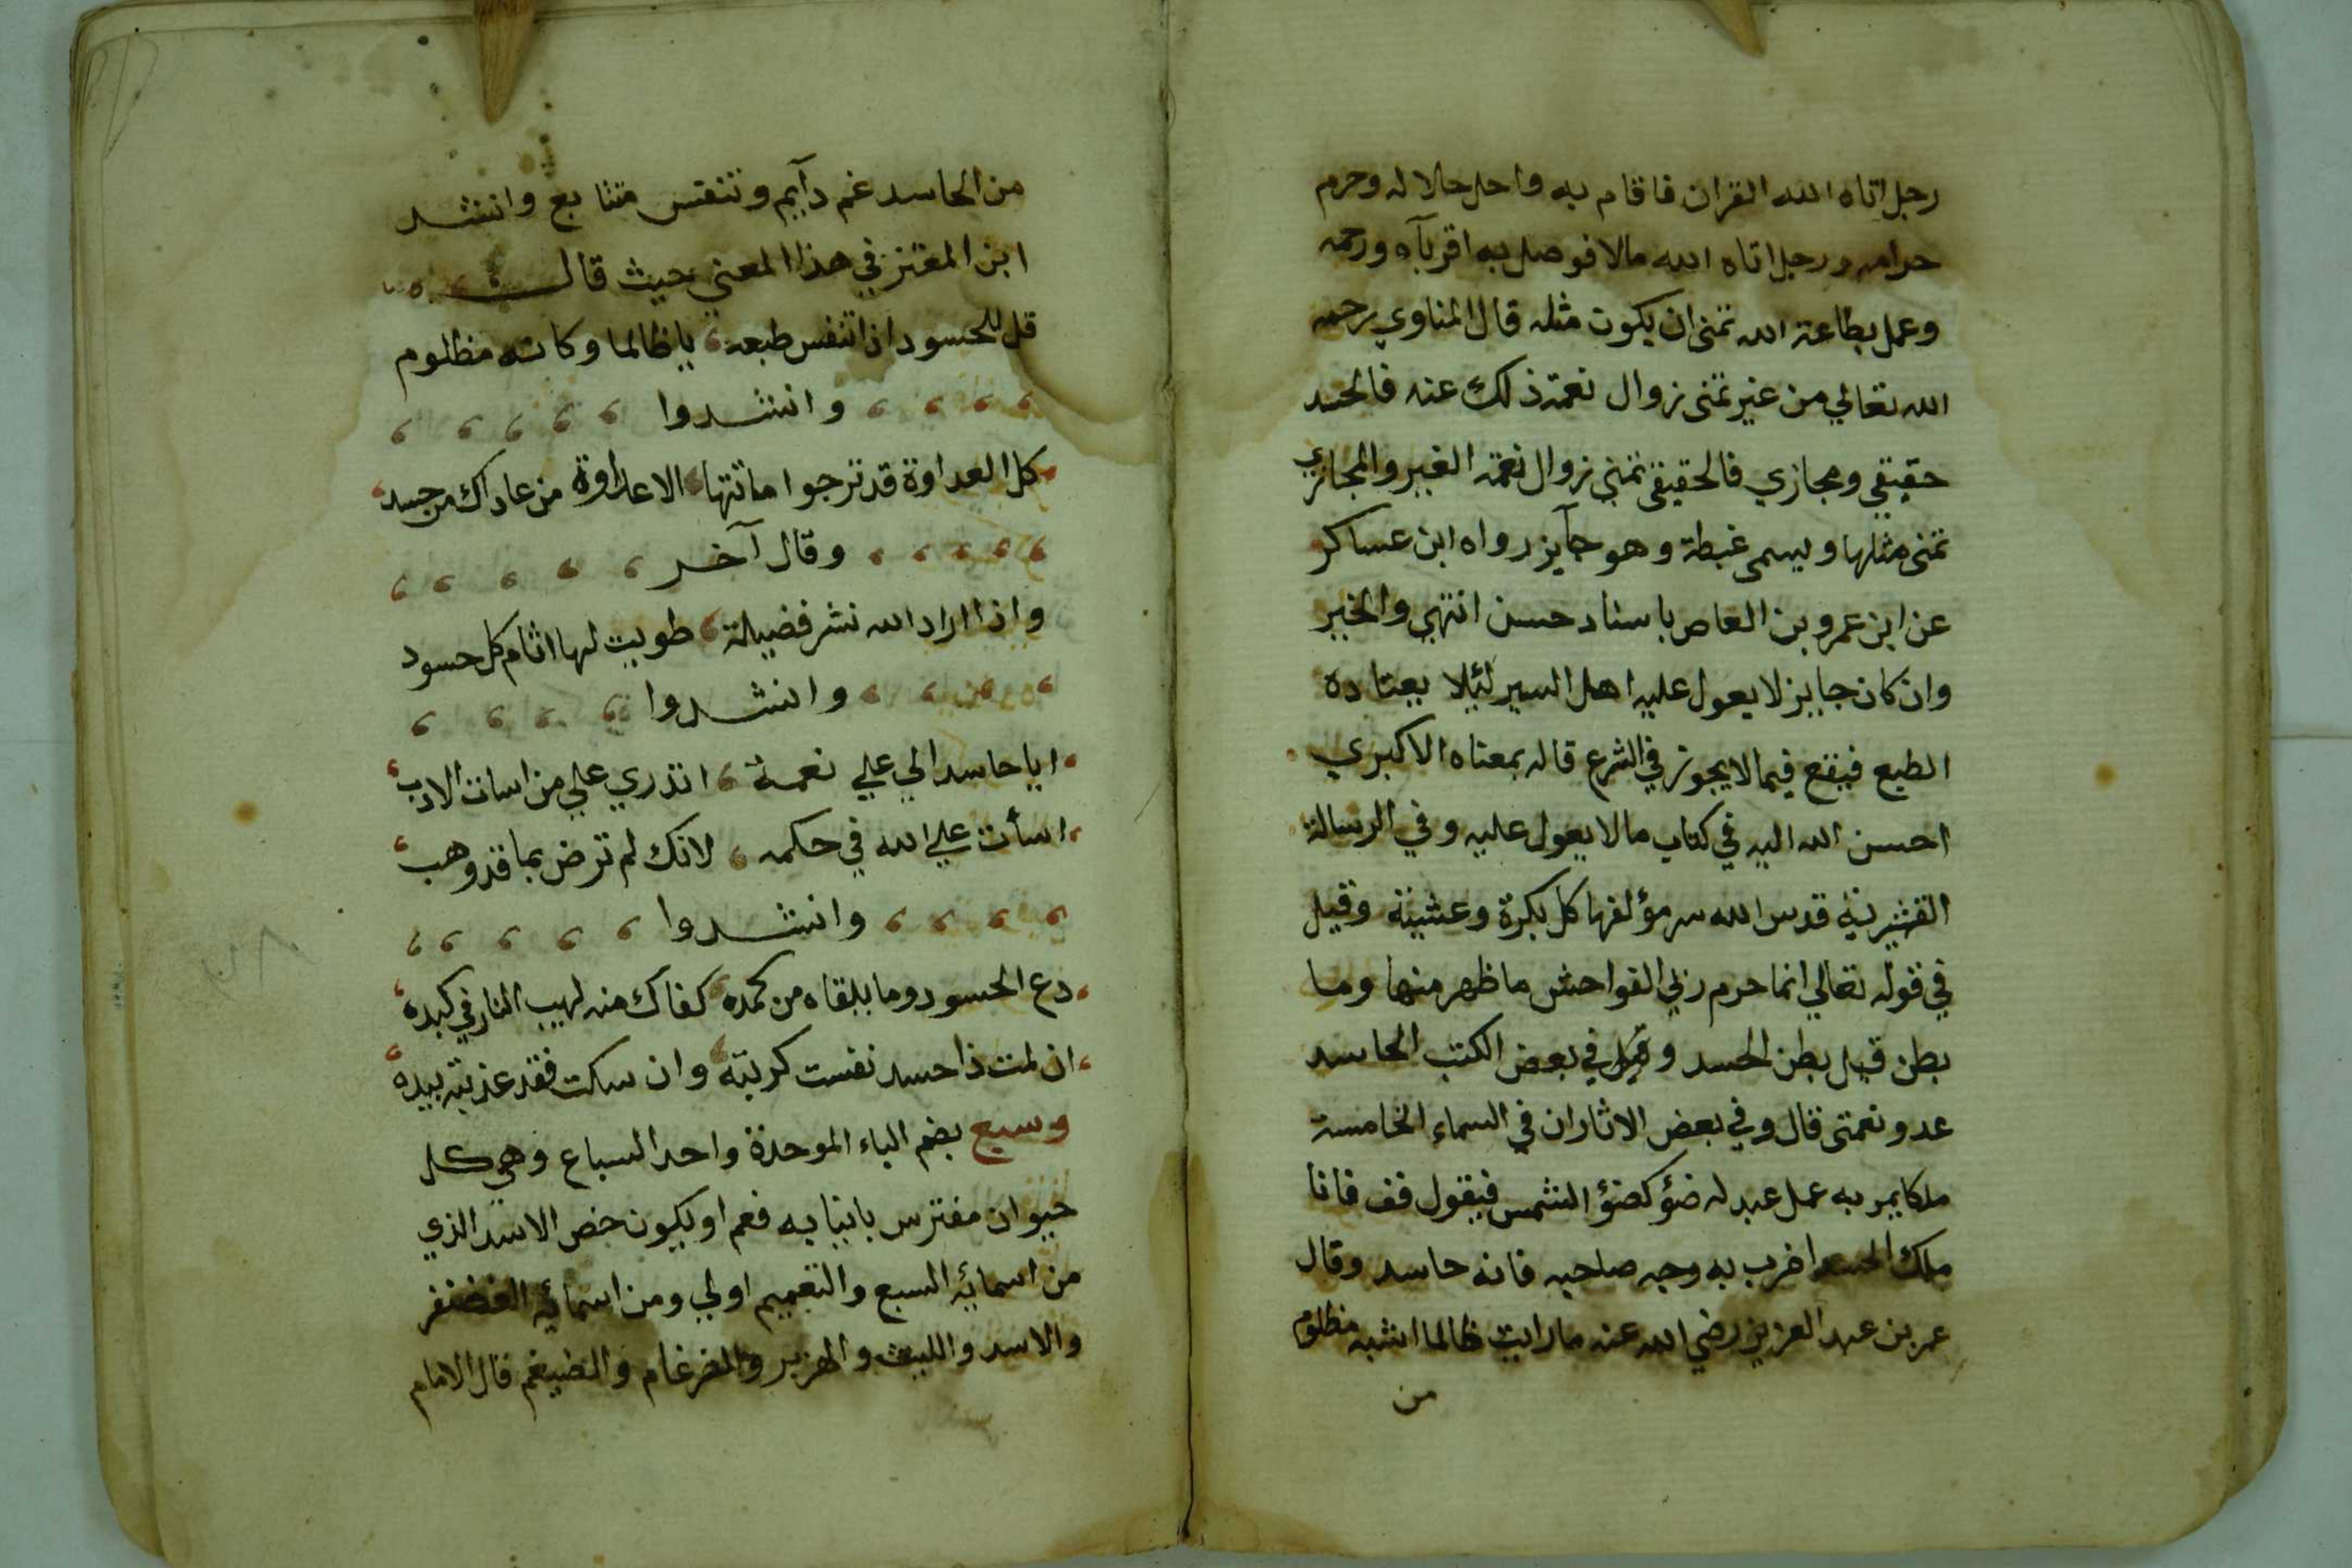 رجل اتاه الله القران فاقام به واحل حلاله وحرم
حرامه ورجل اتاه الله مالا فوصل به اقربآه ورحمه
وعمل بطاعة الله تمنى ان يكون مثله قال المناوي رحمه
الله تعالي من غير تمنى زوال نعمة ذلك عنه فالحسد
حقيقي ومجازي فالحقيقي تمني زوال نعمة الغير والمجازي
تمنى مثلها ويسمى غبطة وهو جآيز رواه ابن عساكر
عن ابن عمرو بن العاص باسناد حسن انتهي والخبر
وان كان جايز لا يعول عليه اهل السير لئلا يعتاده
الطبع فيقع فيما لا يجوز في الشرع قاله بمعناه الاكبري
احسن الله اليه في كتاب مالا يعول عليه وفي الرسالة
القشيرية قدس الله سر مؤلفها كل بكرة وعشية وقيل
في قوله تعالي انما حرم ربي الفواحش ما ظهر منها وما
بطن قيل بطن الحسد وقيل في بعض الكتب الحاسد
عدو نعمتى قال وفي بعض الاثار ان في السماء الخامسة
ملكا يمر به عمل عبد له ضؤ كضؤ الشمس فيقول قف فانا
ملك الحسد اضرب به وجه صاحبه فانه حاسد وقال
عمر بن عبد العزيز رضي الله عنه ما رايت ظالما اشبه مظلوم
من
من الحاسد غم دآيم وتنفس متتابع وانشد
ابن المعتز في هذا المعني حيث قال
قل للحسود اذا تنفس طبعه ، يا ظالما وكانه مظلوم
وانشدوا
كل العداوة قد ترجوا ماتتها ، الا عداوة من عاداك من حسد
وقال آخر
واذا اراد الله نشر فضيلة ، طويت لها اثام كل حسود
وانشدوا
ايا حاسدا لي علي نعمة ، اتدري علي من اسات الادب
اسأت علي الله في حكمه ، لانك لم ترض بما قد وهب
وانشدوا
دع الحسود وما يلقاه من كمده ، كفاك منه لهيب النار في كبده
ان لمت ذا حسد نفست كربته ، وان سكت فقد عذبته بيده
وسبع بضم الباء الموحدة واحد السباع وهي كل
حيوان مفترس بانيابه فعم او يكون خص الاسد الذي
من اسمائه السبع والتعميم اولي ومن اسمائه الغضنفر
والاسد والليث والهزبر والضرغام والضيغم قال الامام